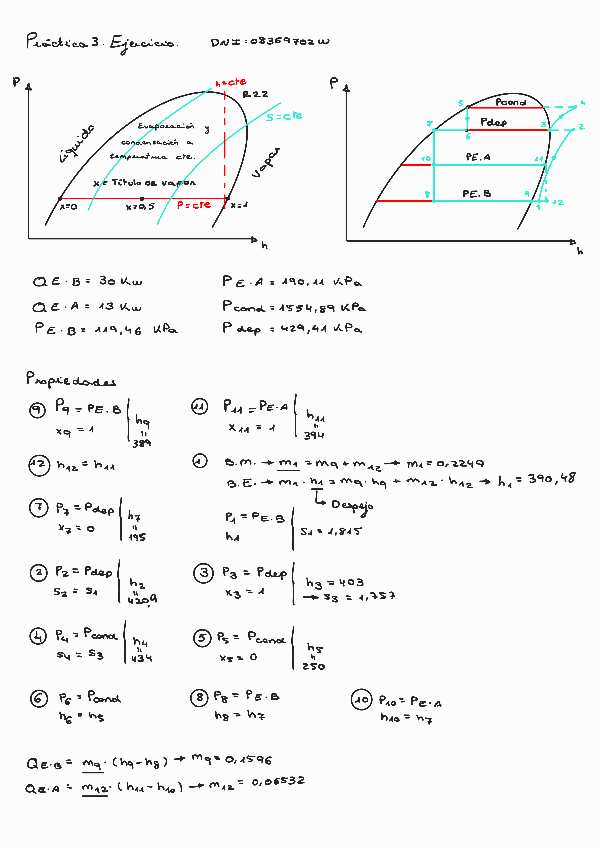 Práctica 3. Ejercicio. DNI: 08369702W
P
h=cte
R22
S=cte
Líquido
Evaporación y
condensación a
temperatura cte.
vapor
x = Título de vapor
x=0
x=0,5
P=cte
x=1
h
P
5
Pcond
4
7
Pdep
3
2
6
10
PE.A
11
8
PE.B
9
1
12
h
QE.B = 30 Kw
PE.A = 190,11 KPa
QE.A = 13 Kw
Pcond = 1554,89 KPa
PE.B = 119,46 KPa
Pdep = 429,41 KPa
Propiedades
9 P9 = PE.B
x9 = 1
h9
=
389
11 P11 = PE.A
x11 = 1
h11
=
394
12 h12 = h11
1 B.M. → m1 = m9 + m12 → m1 = 0,2249
B.E. → m1 · h1 = m9 · h9 + m12 · h12 → h1 = 390,48
Despejo
P1 = PE.B
h1
S1 = 1,815
7 P7 = Pdep
x7 = 0
h7
=
195
2 P2 = Pdep
S2 = S1
h2
=
420,9
3 P3 = Pdep
x3 = 1
h3 = 403
→ S3 = 1,757
4 P4 = Pcond
S4 = S3
h4
=
434
5 P5 = Pcond
x5 = 0
h5
=
250
6 P6 = Pcond
h6 = h5
8 P8 = PE.B
h8 = h7
10 P10 = PE.A
h10 = h7
QE.B = m9 · (h9-h8) → m9 = 0,1596
QE.A = m12 · (h11-h10) → m12 = 0,06532